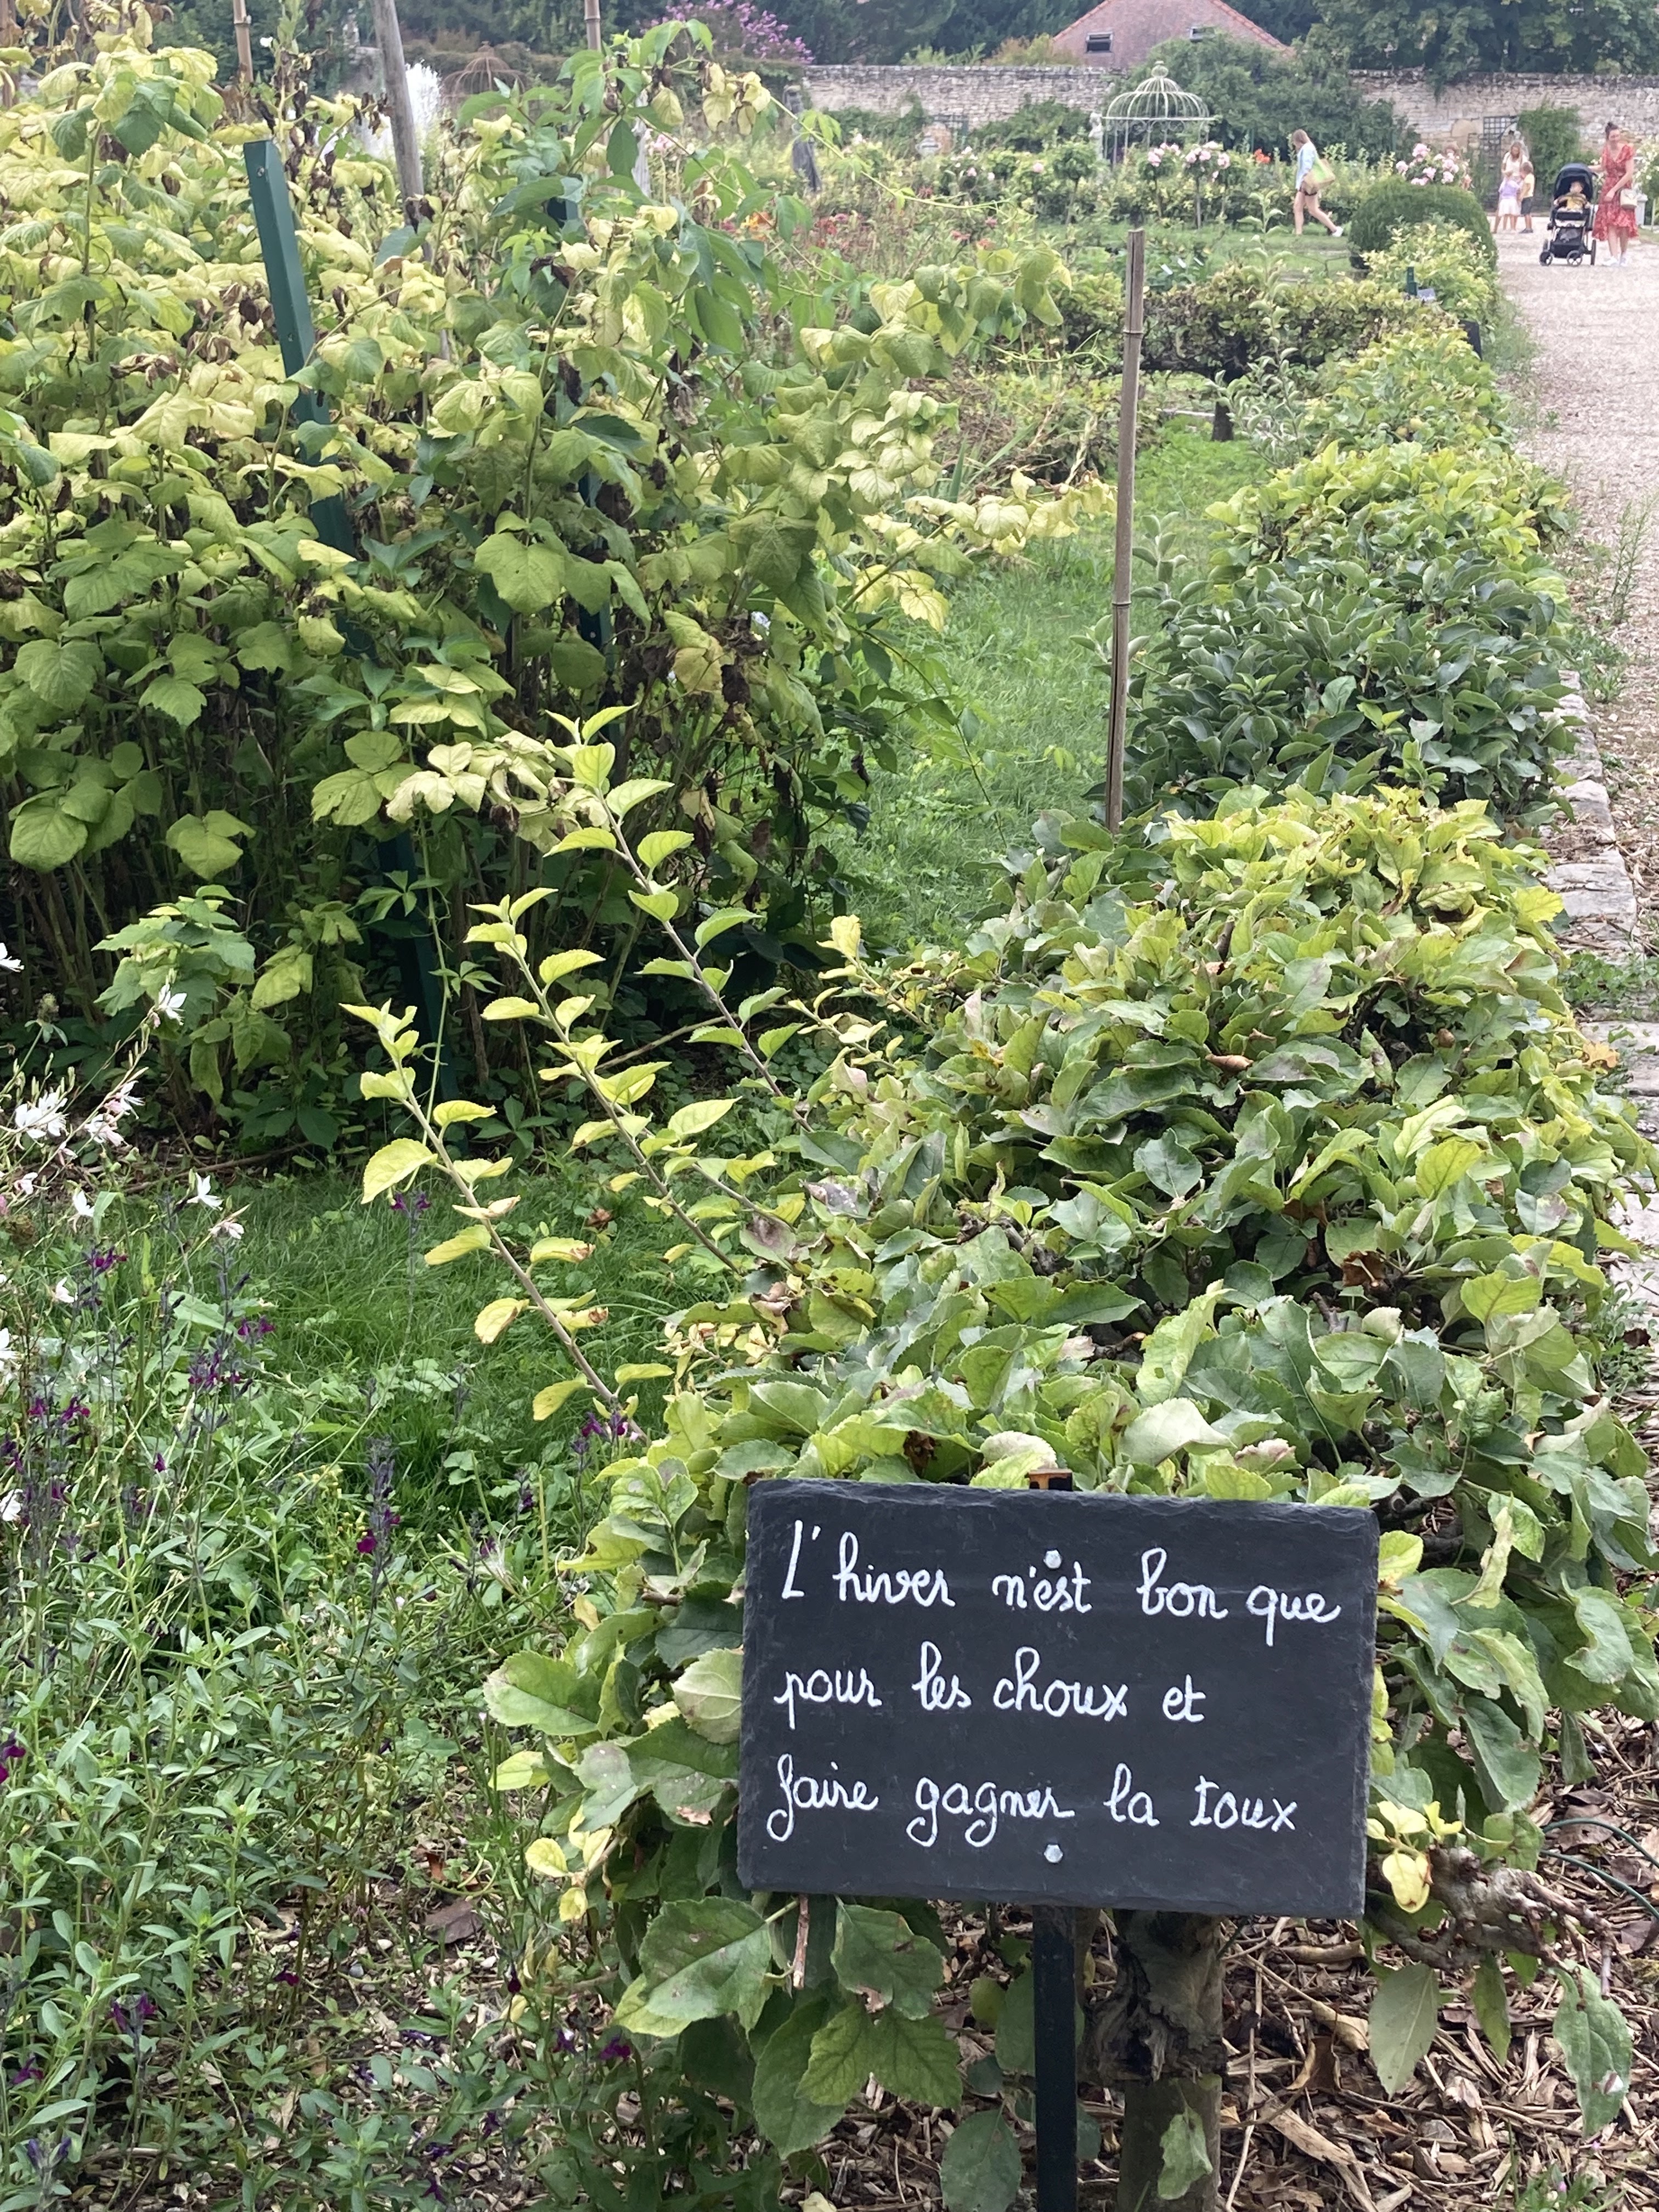 L'hiver n'est bon que
pour les choux et
faire gagner la toux